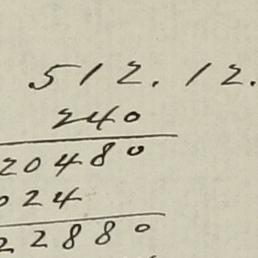 512.12.
240
20480
024
22880